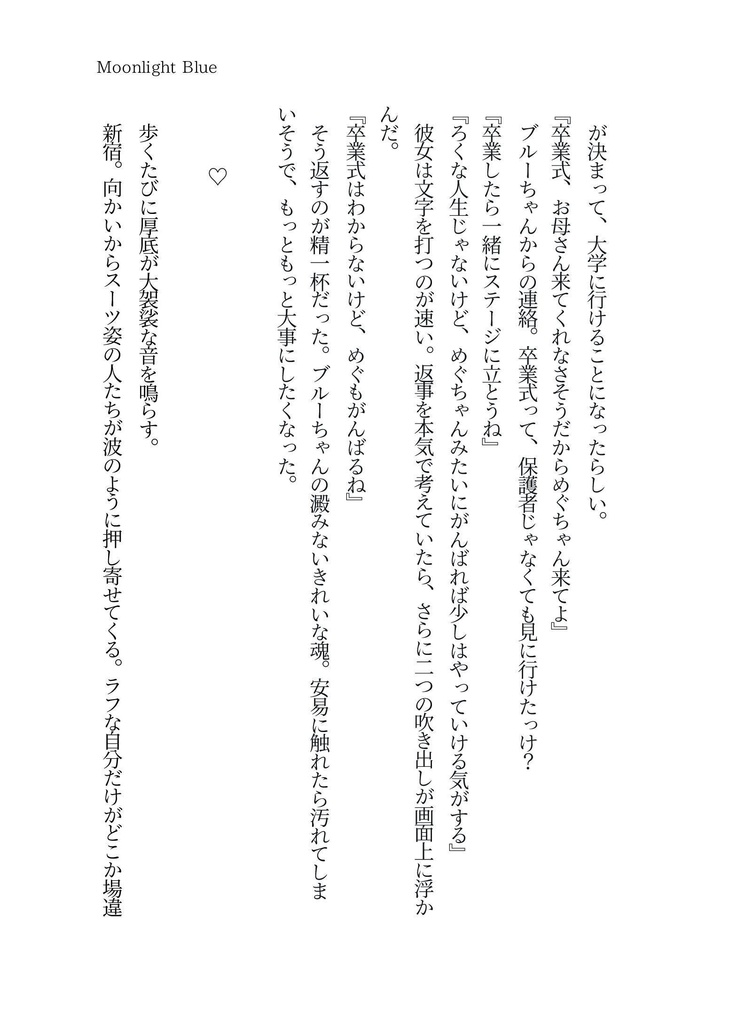 Moonlight Blue
が決まって、大学に行けることになったらしい。
『卒業式、お母さん来てくれなさそうだからめぐちゃん来てよ』
ブルーちゃんからの連絡。卒業式って、保護者じゃなくても見に行けたっけ？
『卒業したら一緒にステージに立とうね』
『ろくな人生じゃないけど、めぐちゃんみたいにがんばれば少しはやっていける気がする』
彼女は文字を打つのが速い。返事を本気で考えていたら、さらに二つの吹き出しが画面上に浮か
んだ。
『卒業式はわからないけど、めぐもがんばるね』
そう返すのが精一杯だった。ブルーちゃんの澱みないきれいな魂。安易に触れたら汚れてしま
いそうで、もっともっと大事にしたくなった。
♡
歩くたびに厚底が大袈裟な音を鳴らす。
新宿。向かいからスーツ姿の人たちが波のように押し寄せてくる。ラフな自分だけがどこか場違